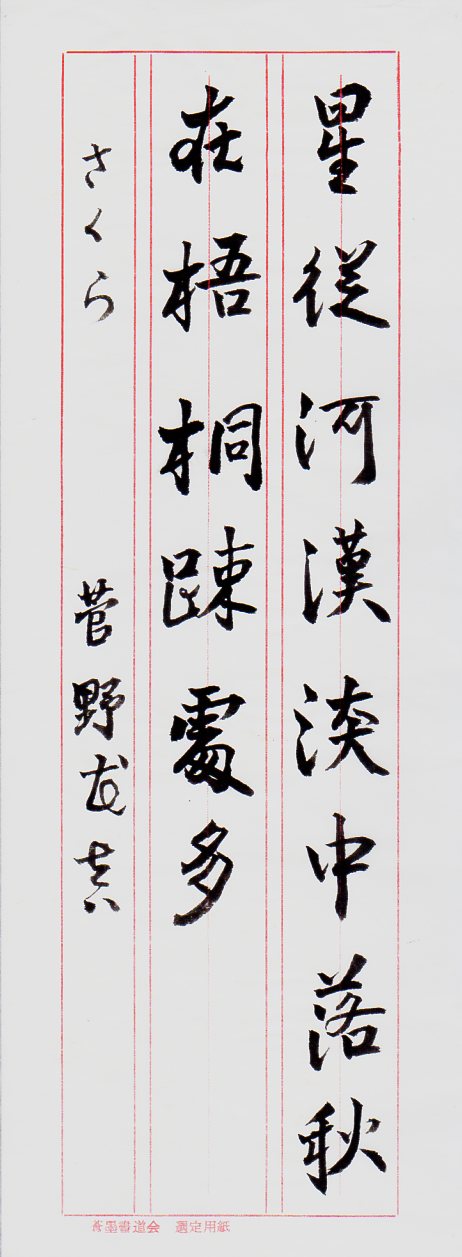 星従河漢淡中落秋
在梧桐踈處多
さくら
菅野
蒼墨書道会 選定用紙